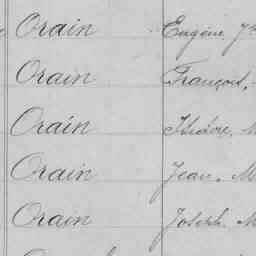 Orain Eugène
Orain François,
Orain Isidore, M
Orain Jean, M
Orain Joseph M